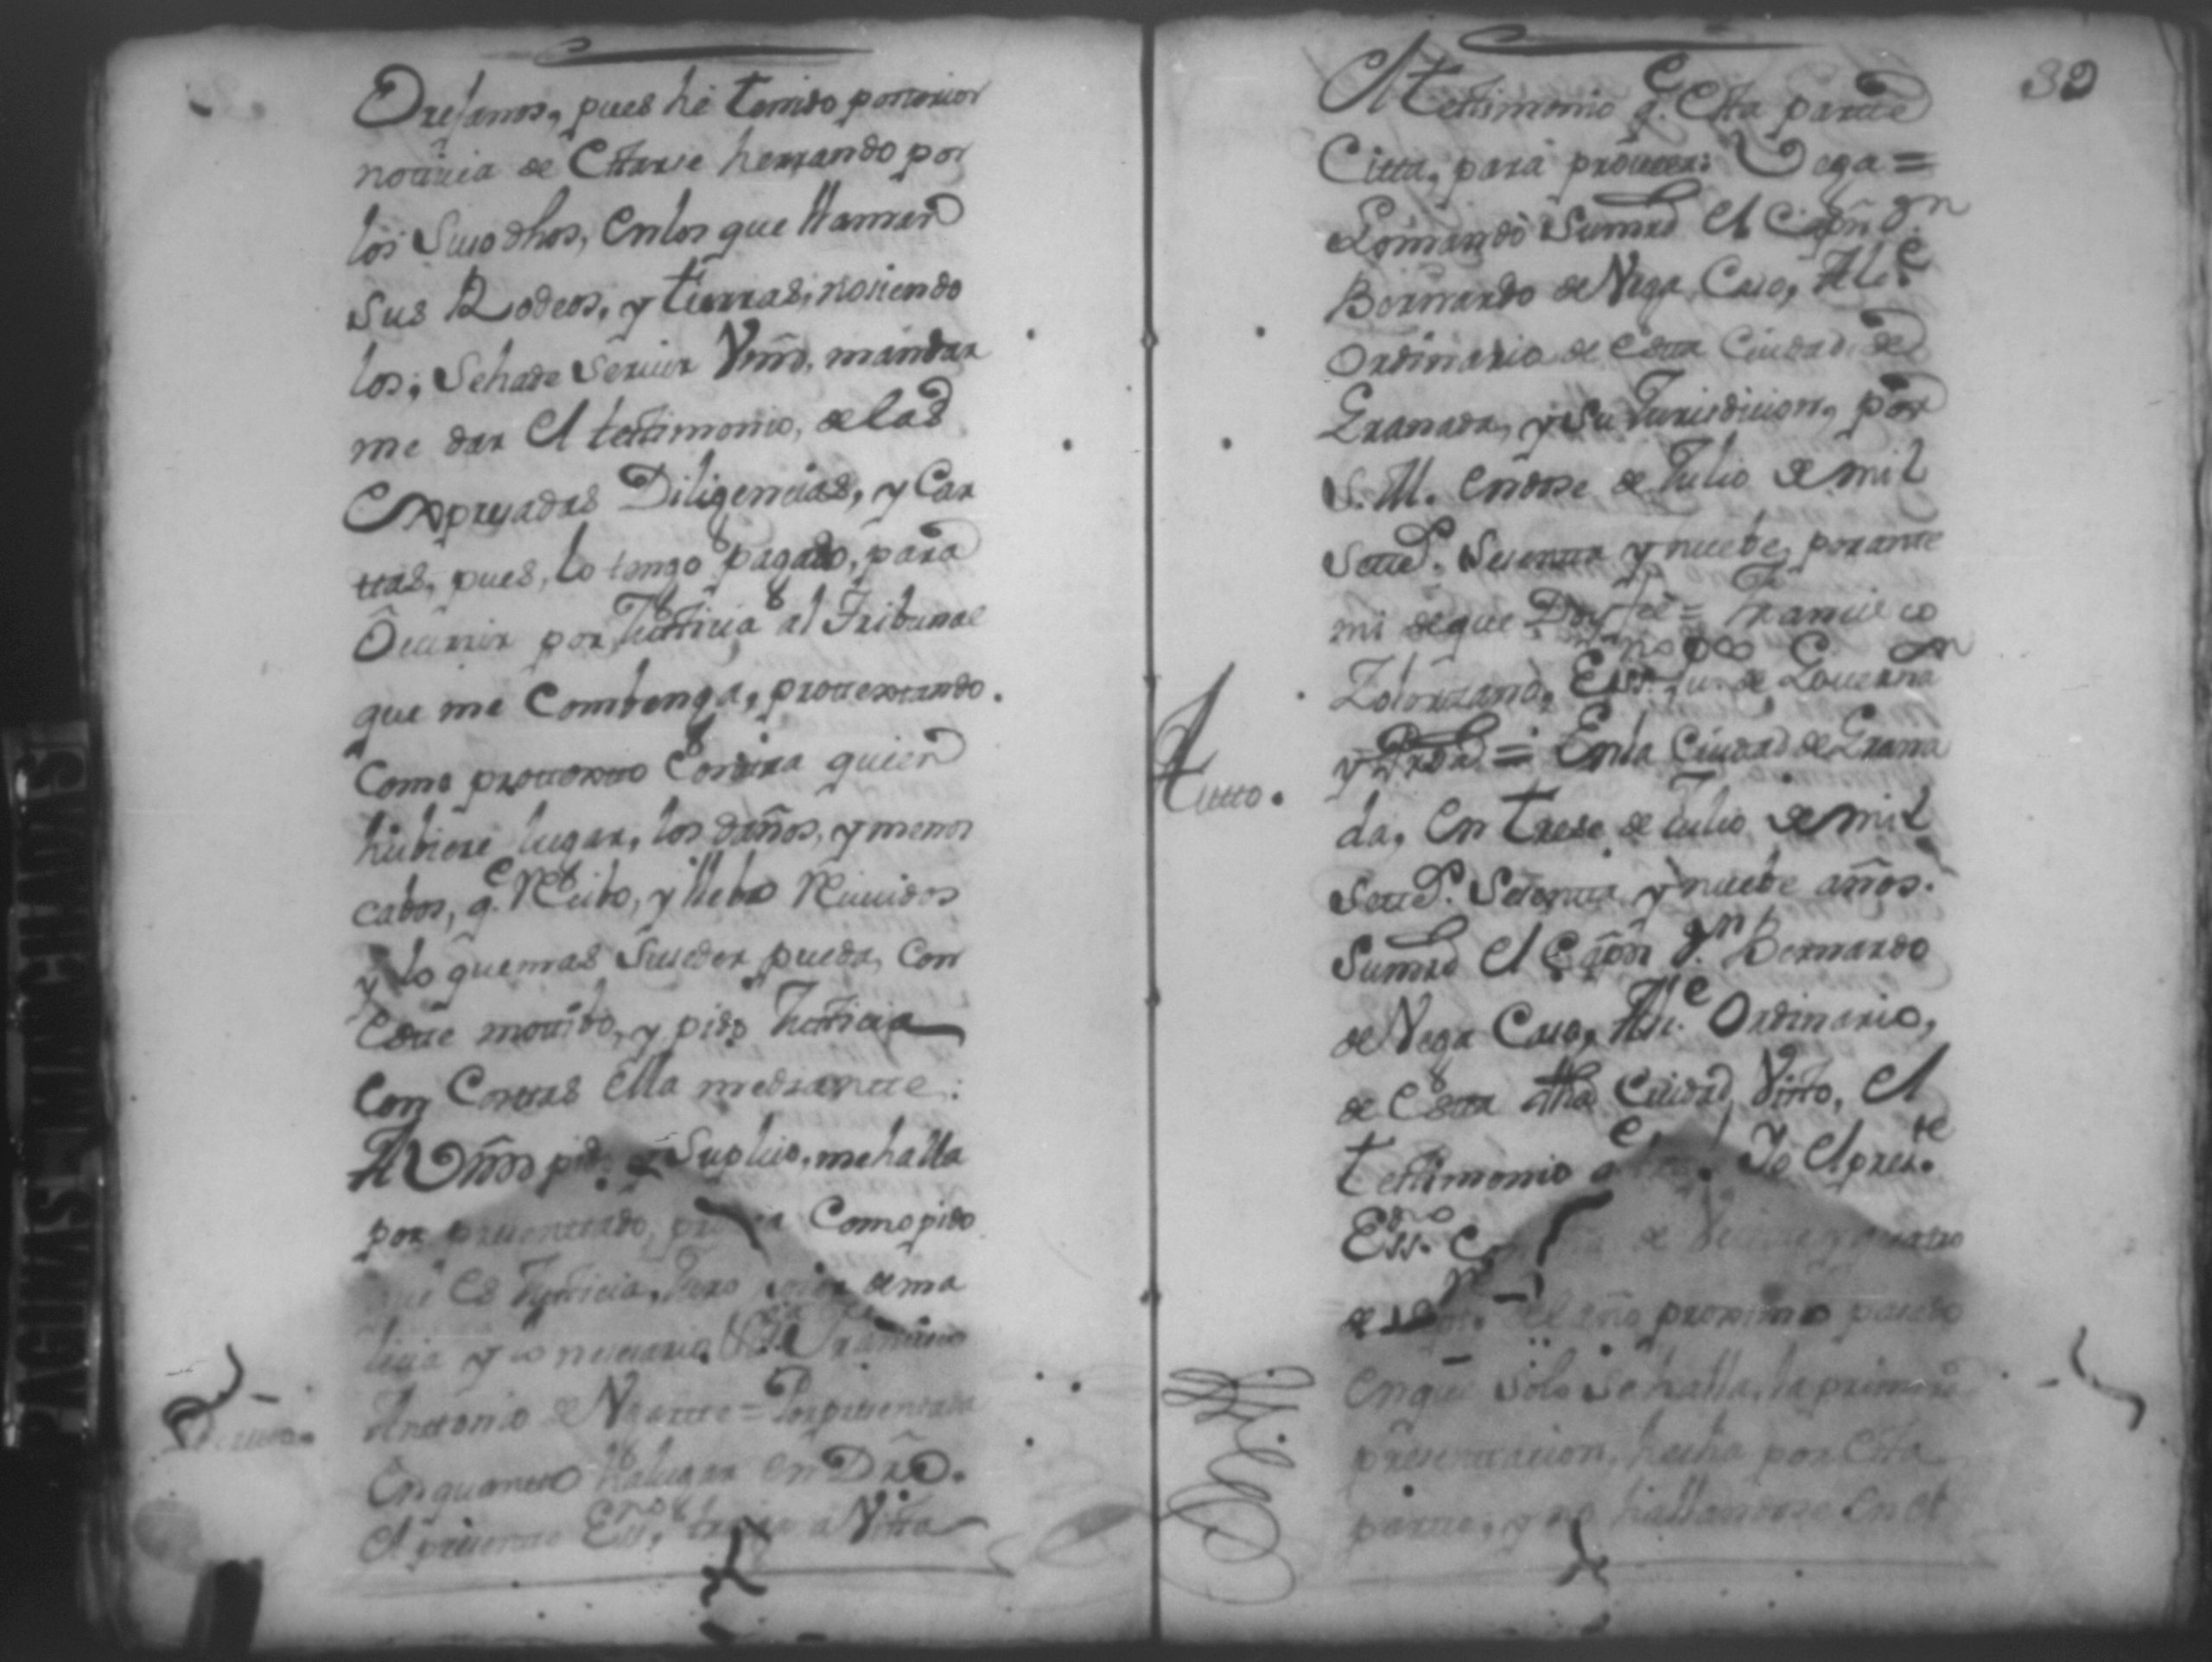 Orejanos, pues hé tenido posterior
noticia de Estarse herrando por
los Susodhos, Enlos que llaman
sus Rodeos, y tierras, nosiendo
los; Sehade Servir Vmd. mandar
me dar El testimonio, de las
Expresadas Diligencias, y Car
ttas, pues, lo tengo pagado, para
Ocurrir por Justicia al Tribunal
que me Combenga, prottextando.
Como prottexto Contra quien
hubiere lugar, los daños, y menos
cabos, q.e Recibo, y llebo Recividos
y lo quemas Suseder pueda, Con
Este motibo, y pido Justicia
Con Costtas Ella mediantte:
A Vmd pido y Suplico, mehalla
por presenttado, Como pido
que Es Justicia, Juro de ma
licia y lo nesesario Francisco
Antonio de Ugartte = Por presentada
Enquantto halugar En Dro.
El presente Ess.no traiga a Vista
32
El testimonio q.e Esta partte
Citta, para proveer: Vega =
Lomandó Sumrd El Cappn Dn
Bernardo de Vega Caso, Alc.e
Ordinario de Esta Ciudad de
Granada, y Su Jurisdicion, por
S. M. Endose de Julio de mil
Setts. Setenta y nuebe, porante
mi deque Doy fée = Francisco
Zolorzano, Ess.no pu.co de Governn
y = Enla Ciudad de Grana
Autto.
da, En trese de Julio de mil
Setts. Setenta y nuebe años.
Sumrd El Cappn Dn Bernardo
de Vega Caso, Alc.e Ordinario,
de Esta dha Ciudad, Visto, El
testimonio Yo El pres.te
Ess.no de Veinte y quatro
de del año proximo pasado
Enque Solo Sehalla, la primera
presentacion, hecha por Esta
partte, y no hallandose En el